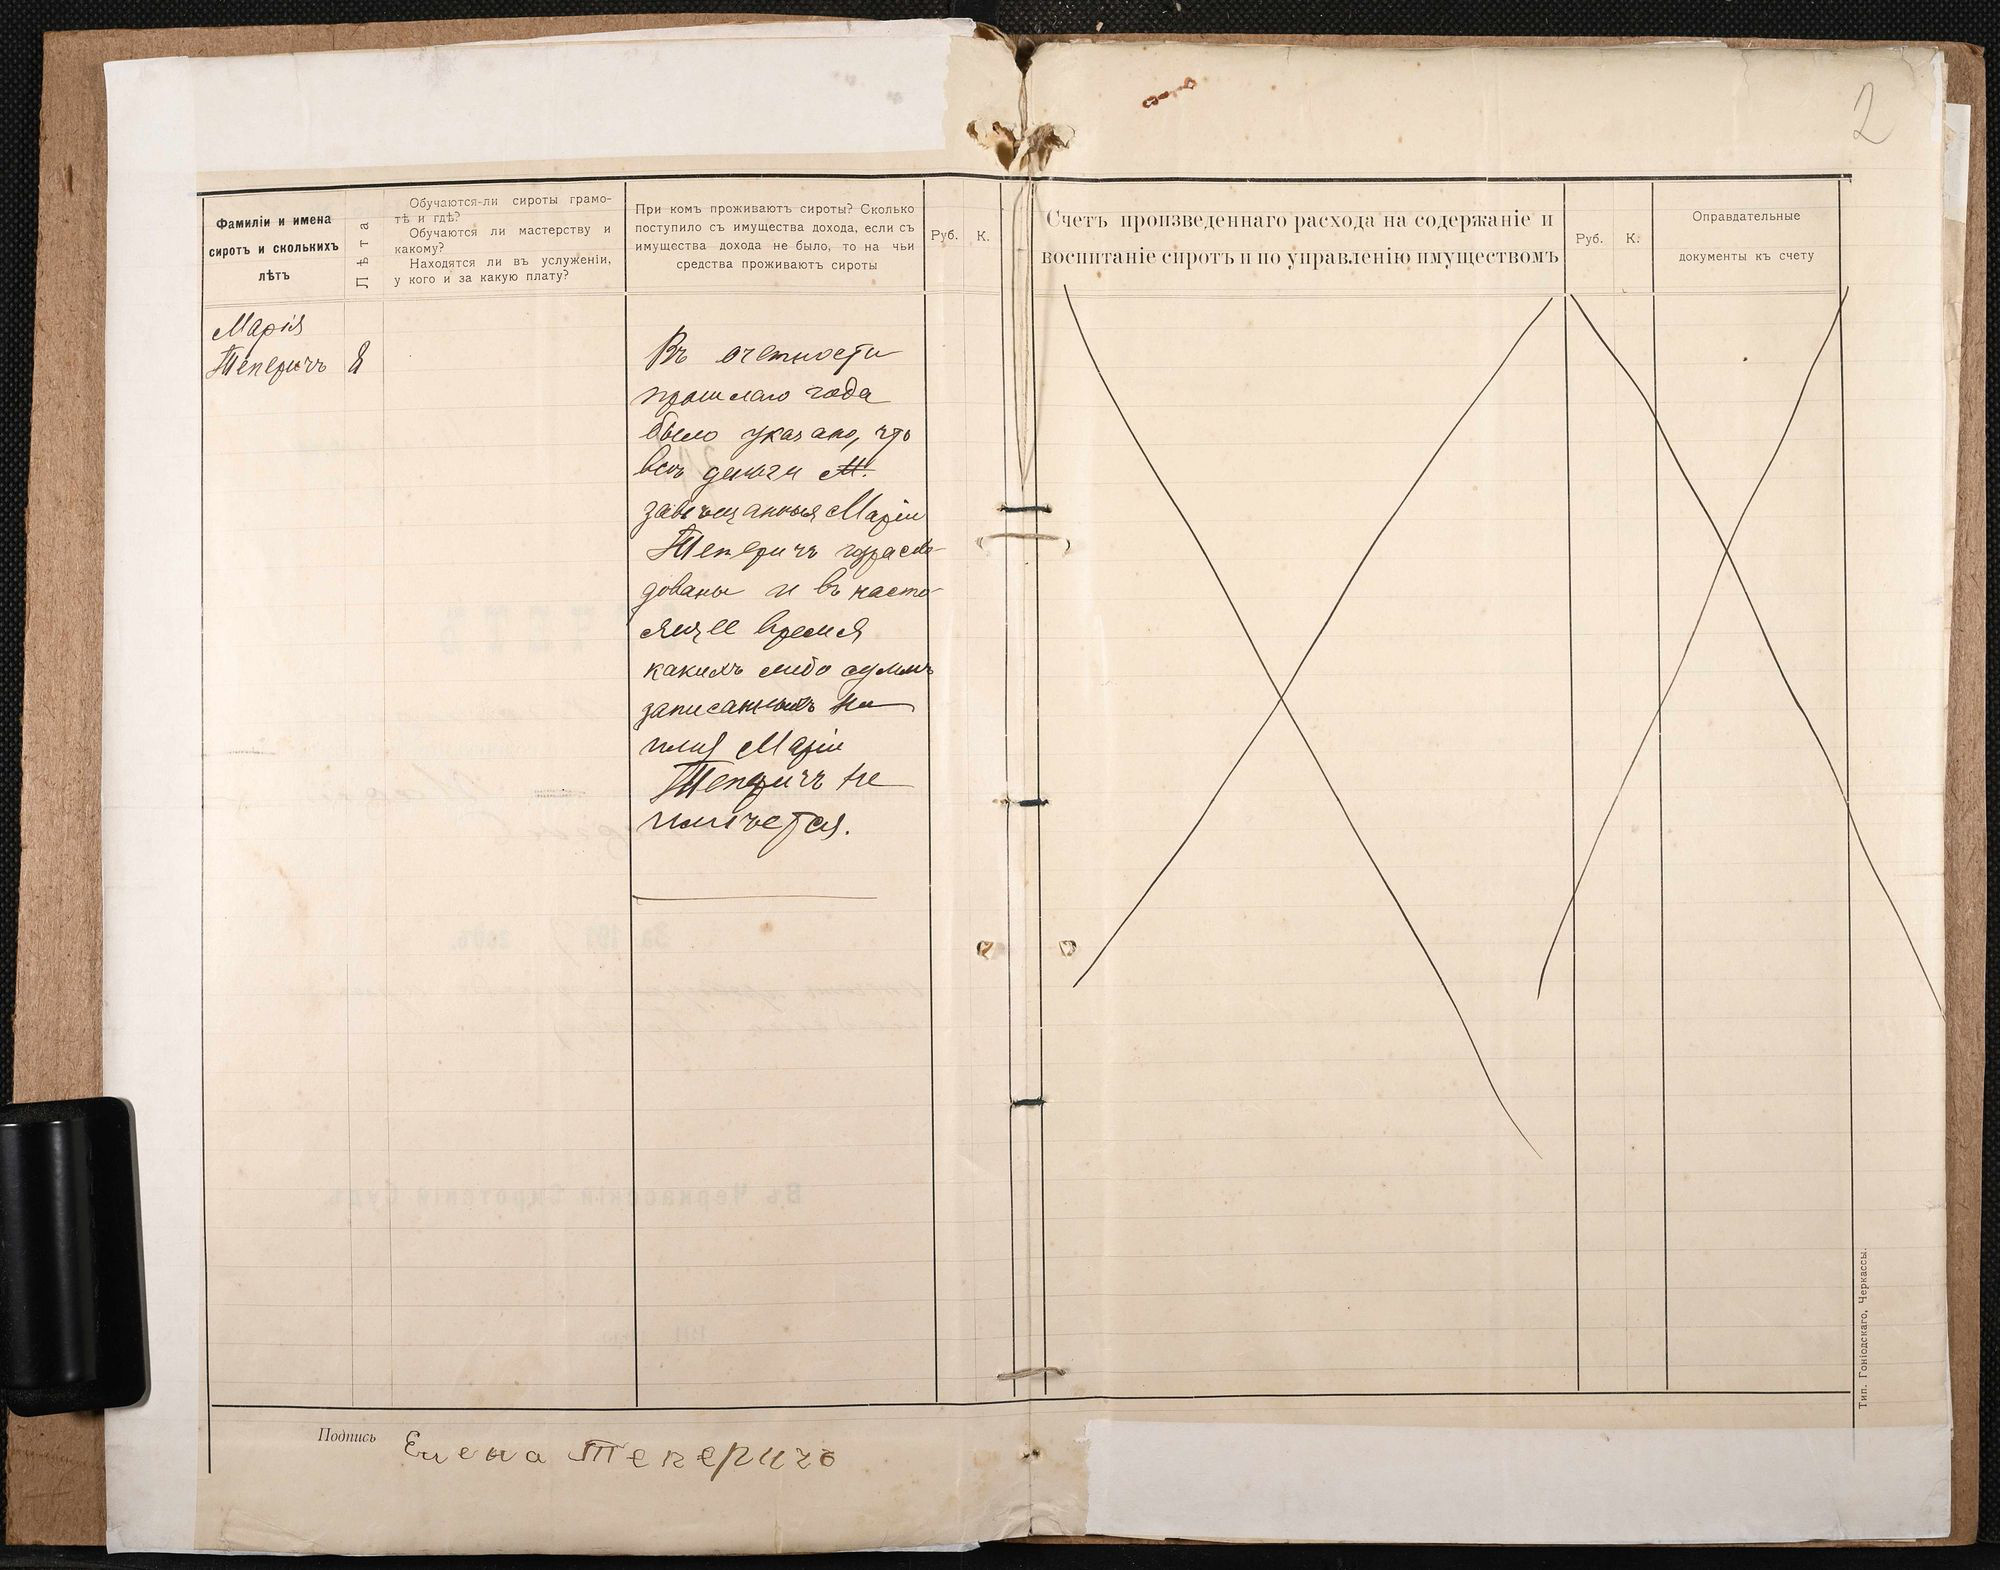 2
Фамиліи и имена
сиротъ и сколькихъ
лѣтъ
Лѣта
Обучаются-ли сироты грамо-
тѣ и гдѣ?
Обучаются ли мастерству и
какому?
Находятся ли въ услуженіи,
у кого и за какую плату?
При комъ проживаютъ сироты? Сколько
поступило съ имущества дохода, если съ
имущества дохода не было, то на чьи
средства проживаютъ сироты
Руб.
К.
Счетъ произведеннаго расхода на содержаніе и
воспитаніе сиротъ и по управленію имуществомъ
Руб.
К.
Оправдательные
документы къ счету
Марія
Теперичъ 8
Въ отчетности
прошлаго года
было указано, что
всѣ деньги М.
завѣщанныя Маріи
Теперичъ израсхо-
дованы и въ насто-
ящее время
какихъ либо суммъ
записанныхъ на
имя Маріи
Теперичъ не
имѣется.
Подпись Елена Теперичъ
Тип. Гоніодскаго, Черкассы.